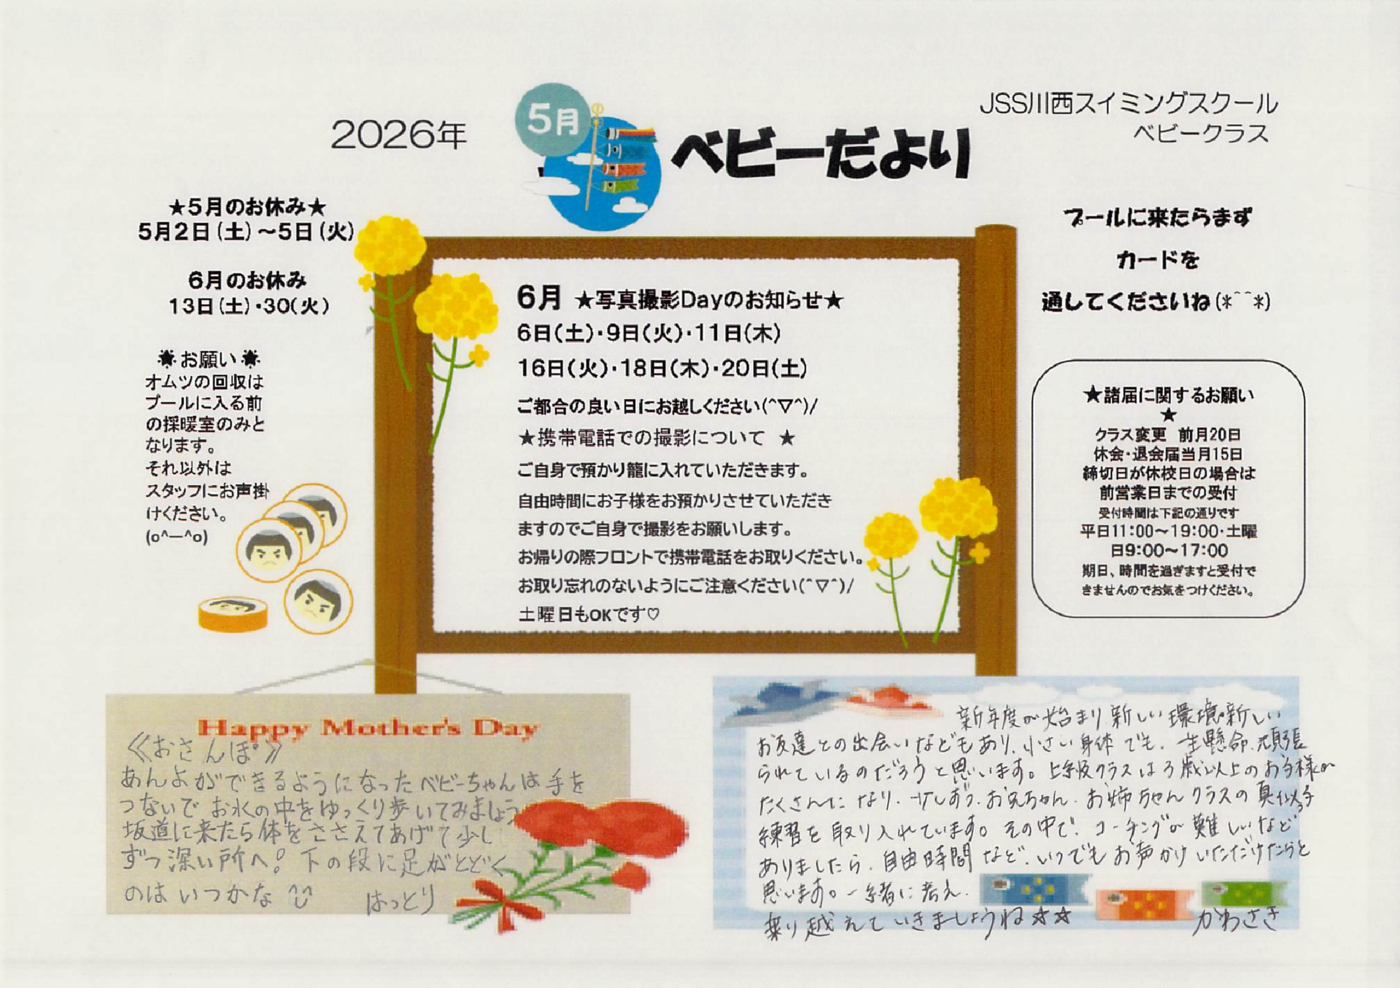 2026年
5月
ベビーだより
JSS川西スイミングスクール
ベビークラス
★5月のお休み★
5月2日(土)～5日(火)
6月のお休み
13日(土)・30(火)
お願い
オムツの回収は
プールに入る前
の採暖室のみと
なります。
それ以外は
スタッフにお声掛
けください。
(o^ー^o)
6月 ★写真撮影Dayのお知らせ★
6日(土)・9日(火)・11日(木)
16日(火)・18日(木)・20日(土)
ご都合の良い日にお越しください(^▽^)/
★携帯電話での撮影について ★
ご自身で預かり籠に入れていただきます。
自由時間にお子様をお預かりさせていただき
ますのでご自身で撮影をお願いします。
お帰りの際フロントで携帯電話をお取りください。
お取り忘れのないようにご注意ください(^▽^)/
土曜日もOKです♡
プールに来たらまず
カードを
通してくださいね(*^^*)
★諸届に関するお願い
★
クラス変更 前月20日
休会・退会届当月15日
締切日が休校日の場合は
前営業日までの受付
受付時間は下記の通りです
平日11:00～19:00・土曜
日9:00～17:00
期日、時間を過ぎますと受付で
きませんのでお気をつけください。
Happy Mother's Day
《おさんぽ》
あんよができるようになったベビーちゃんは手を
つないでお水の中をゆっくり歩いてみましょう
坂道に来たら体をささえてあげて少し
ずつ深い所へ! 下の段に足がとどく
のはいつかな
はっとり
新年度が始まり新しい環境新しい
お友達との出会いなどもあり、小さい身体でも、一生懸命、頑張
られているのだろうと思います。上級クラスは3歳以上のお子様が
たくさんになり、少しお兄ちゃん、お姉ちゃんクラスの真似っ子
練習を取り入れています。その中で、コーチングが難しいなど
ありましたら、自由時間など、いつでもお声かけいただけたらと
思います。一緒に考え、
乗り越えていきましょうね☆☆
かわさき